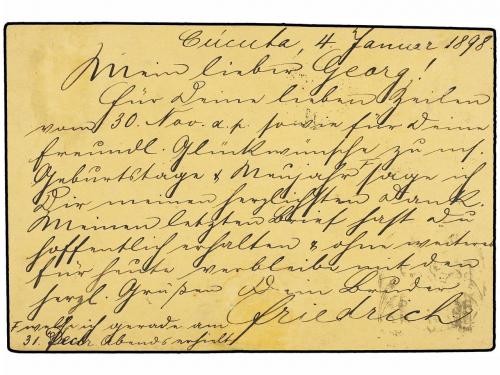 Cúcuta, 4. Januar 1898
Mein lieber Georg!
Für Deine lieben Zeilen
vom 30. Nov. a. p. sowie für Deine
freundl. Glückwünsche zu m.
Geburtstage & Neujahr F sage ich
Dir meinen herzlichsten Dank.
Meinen letzten Brief hast Du
hoffentlich erhalten & ohne weiteres
für heute verbleibe mit den
herzl. Grüßen Dein Bruder
Friedrich
F welche ich gerade am
31. Decbr. Abends erhielt